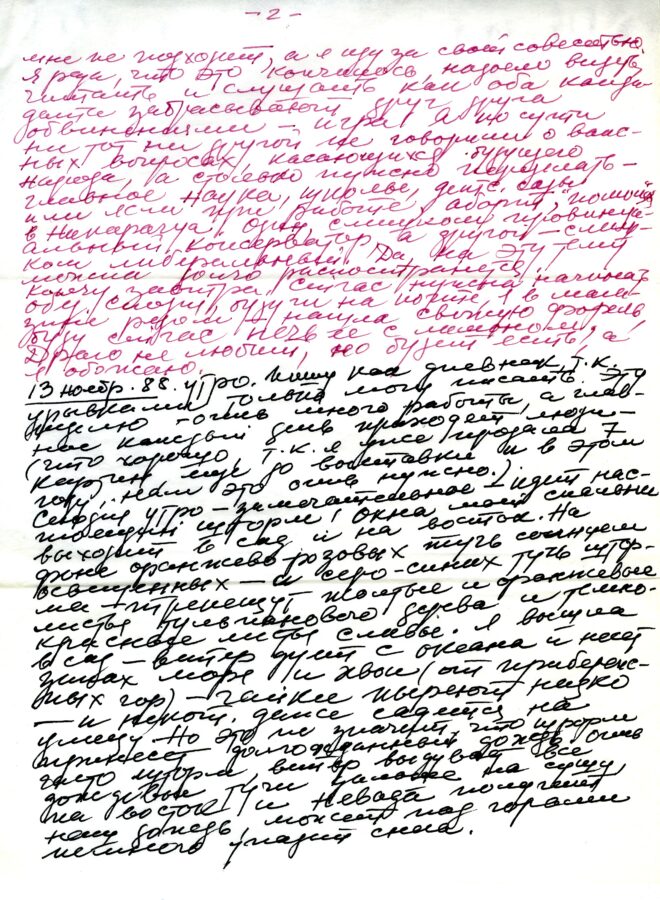 - 2 -
мне не подходит, а я иду за своей совестью.
Я рада, что это кончилось, надоело видеть
читать и слушать как оба канди
даты забрасывают друг друга
обвинениями — игра! А по сути
ни тот ни другой не говорили о важ-
ных вопросах, касающихся будущего
народа, а столько нужно переделать —
главное наука, школы, детс. сады
или ясли при работе, аборт, помощь
в Никарагуа. Один слишком провинци-
альный консерватор, а другой — слиш-
ком либеральный. Да на эту тему
можно долго распространяться.
Кончу завтра, сейчас нужно начинать
обед. Сегодня, будучи на
я в мага-
зине рядом нашла свежую форель
буду сейчас печь ее с лимоном,
не любит, но будет есть, а
я обожаю.
13 ноябр. 88. утро. Пишу как дневник, т.к.
урывками только могу писать. Эту
неделю - очень много работы, а глав-
ное каждый день приходят люди -
(что хорошо, т.к. я уже продала 7
картин еще до выставки и в этом
году, нам это очень нужно.)
Сегодня утро - замечательное - идет нас-
тоящий шторм! Окна моей спальни
выходят в сад и на восток. На
фоне оранжево-розовых туч солнцем
освещенных — и серо-синих туч штор-
ма - трепещут желтые и оранжевые
листья тюльпанового дерева и темно-
красные листья сливы. Я вышла
в сад — ветер дует с океана и несет
запах моря и хвои (от прибереж-
ных гор) — чайки ныряют низко
— и
даже садятся на
улицу. Но это не значит, что шторм
принесет долгожданный дождь, очень
часто шторм, ветер выдувает все
дождевые тучи дальше на сушу
на восток, и Невада получает
наш дождь, может над горами
немного упадет снега.